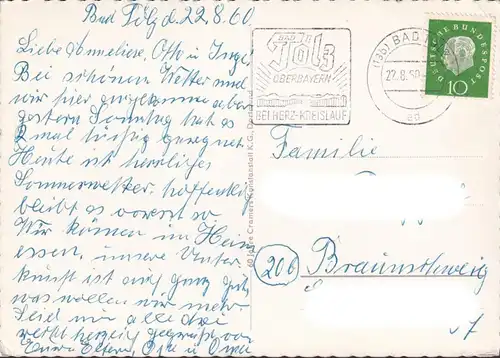 Bad Tölz d. 22.8.60
Liebe Anneliese, Otto u. Inge!
Bei schönem Wetter sind
wir hier angekommen aber
gestern Sonntag hat es
2 mal tüchtig geregnet
Heute ist herrliches
Sommerwetter, hoffentlich
bleibt es vorerst so
Wir können im Haus
essen, unsere Unter
kunft ist auch ganz gut,
was wollen wir mehr.
Seid nun alle drei
recht herzlich gegrüßt von
Euren Eltern, Opa u. Oma
BAD
Tölz
OBERBAYERN
BEI HERZ-KREISLAUF
(13b) BAD
22.8.60
ad
DEUTSCHE BUNDESPOST
10
Cramers Kunstanstalt K.G. Dortmund
Familie
(20b) Braunschweig